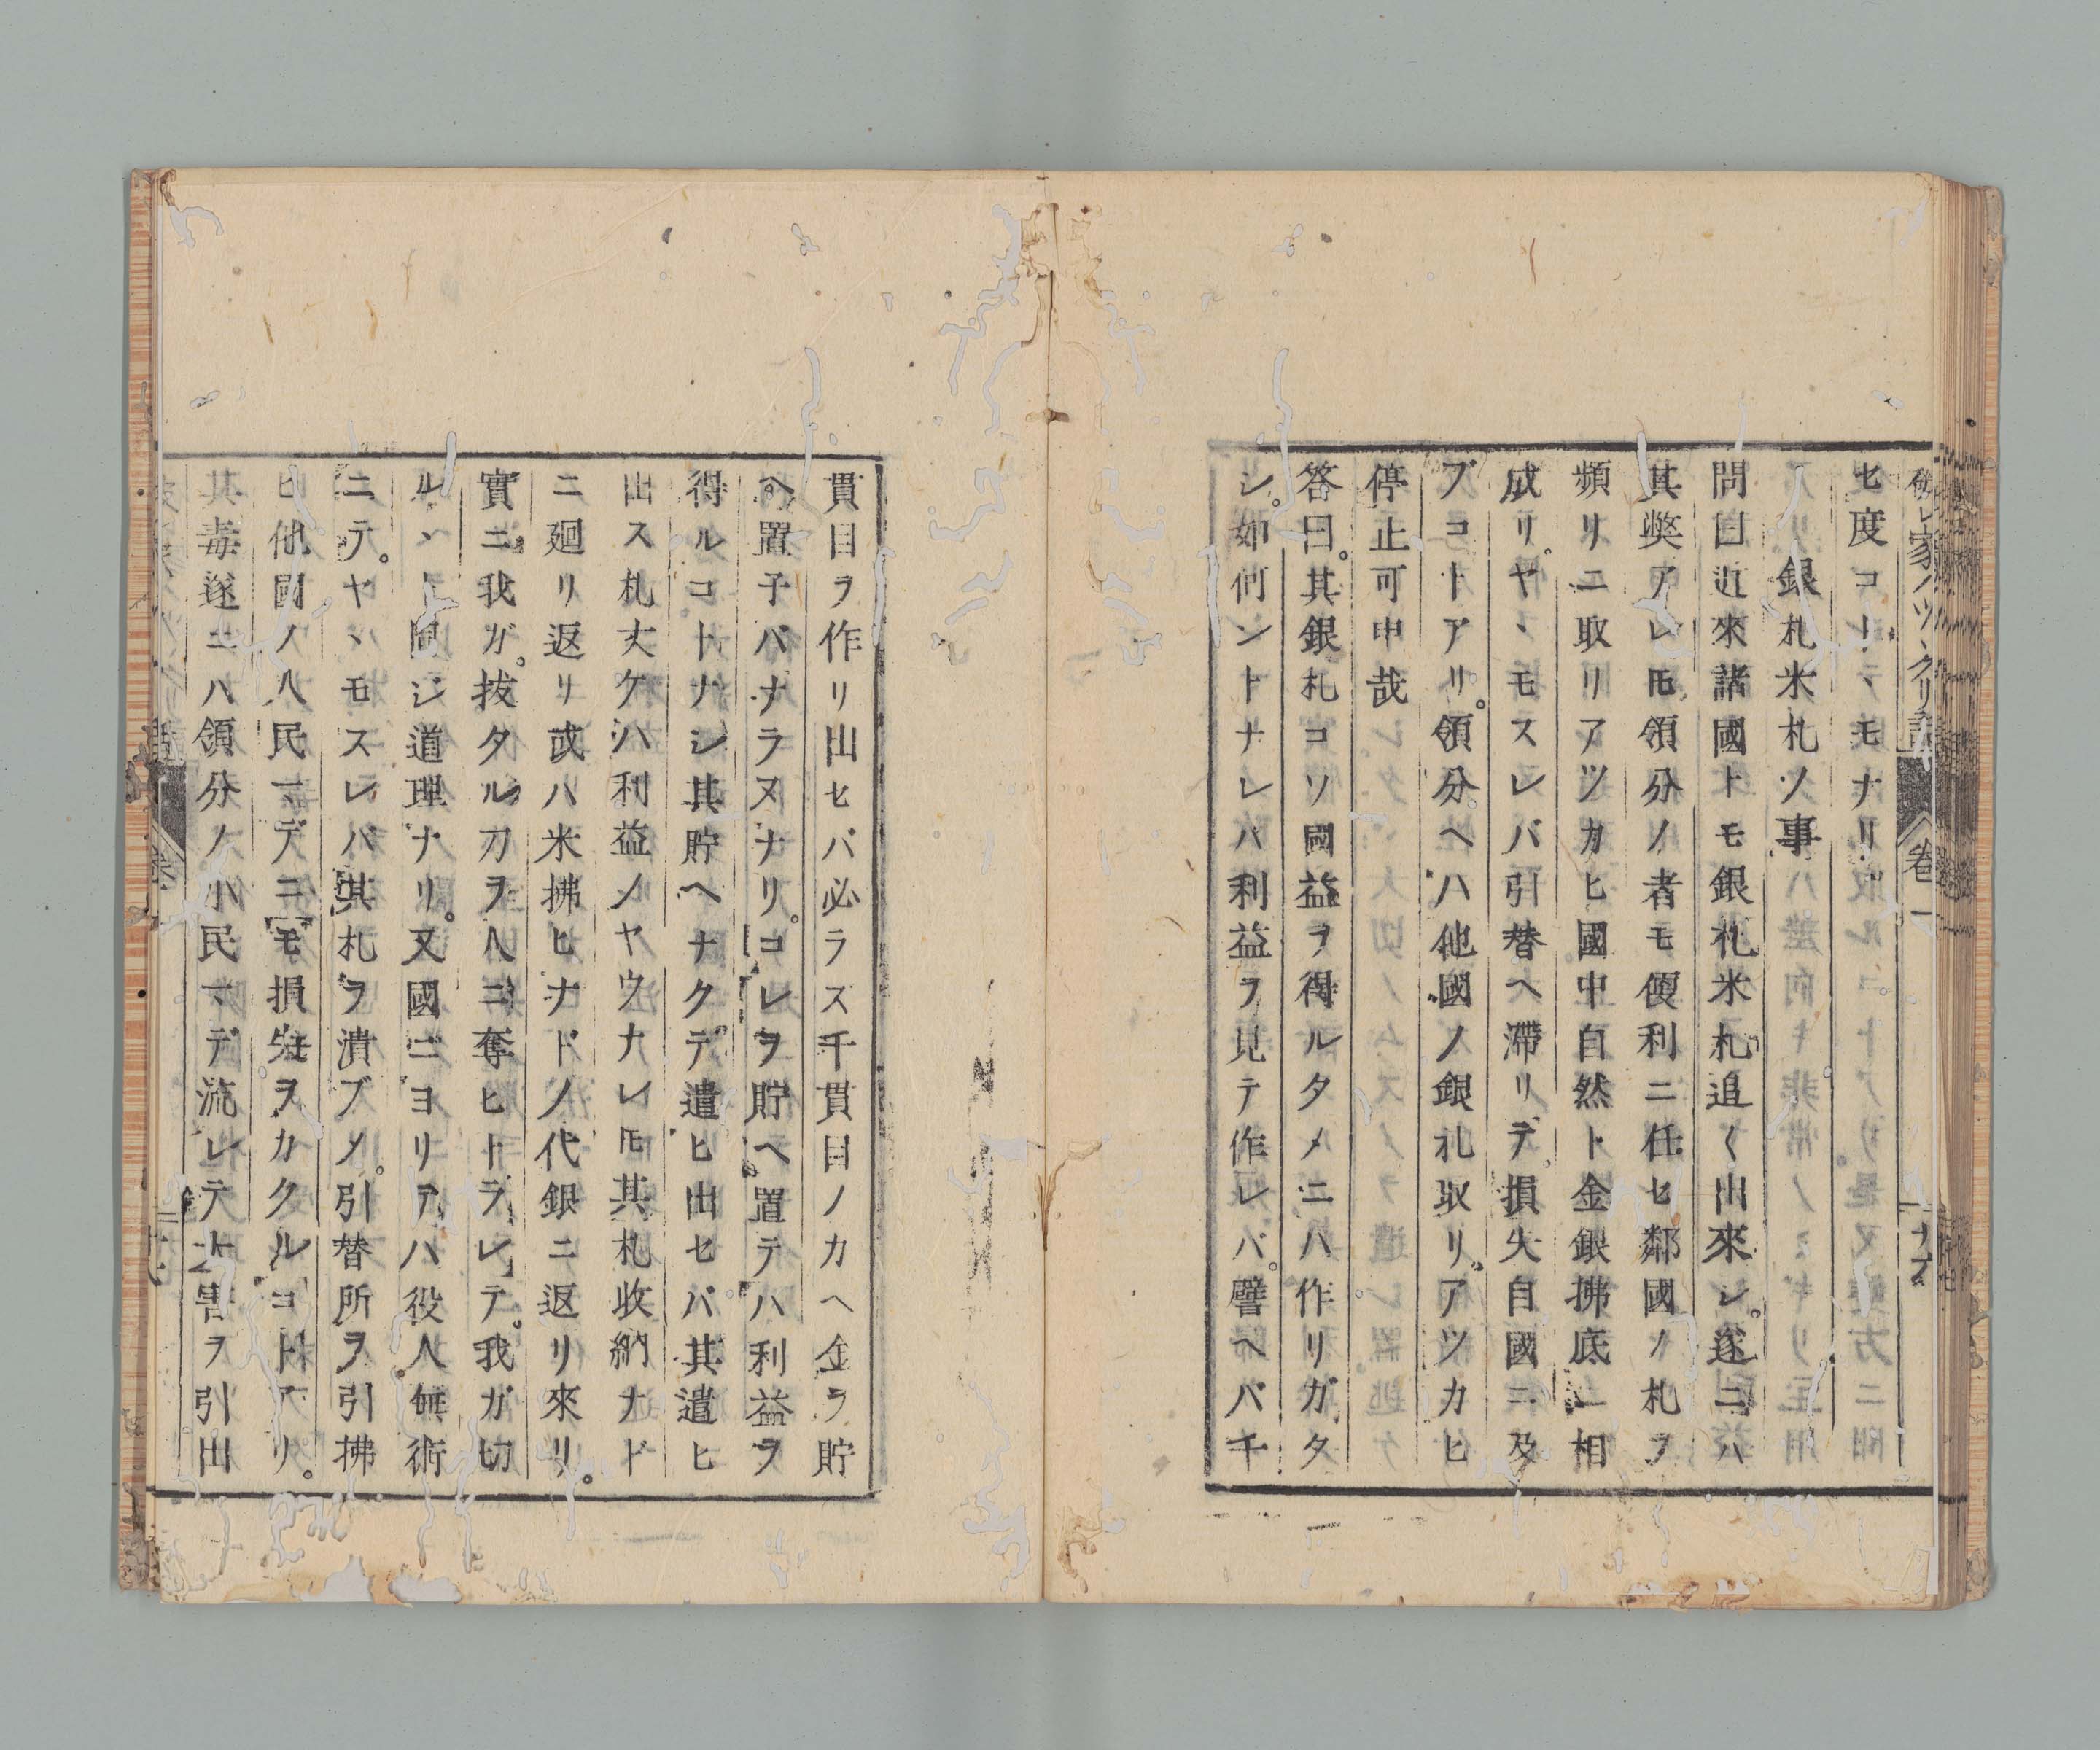 破レ家ノツヽクリ話 卷一
セ度コトヽモナリ
銀札米札ノ事
問曰近來諸國トモ銀札米札追〱出來シ。遂ニハ
其弊アレ𪜈領分ノ者モ便利ニ任セ鄰國ノ札ヲ
頻リニ取リアツカヒ國中自然ト金銀拂底ニ相
成リ。ヤヽモスレバ引替ヘ滯リテ。損失自國ニ及
ブコトアリ。領分ヘハ他國ノ銀札取リアツカヒ
停止可申哉
答曰。其銀札コソ國益ヲ得ルタメニハ作リガタ
シ。如何ントナレバ利益ヲ見テ作レバ。譬ヘバ千
貫目ヲ作リ出セバ必ラス千貫目ノカヘ金ヲ貯
ヘ置子バナラヌナリ。コレヲ貯ヘ置テハ利益ヲ
得ルコトナシ其貯ヘナクテ遣ヒ出セバ其遣ヒ
出ス札丈ケハ利益ノヤウナレ𪜈其札收納ナド
ニ廻リ返リ或ハ米拂ヒナドノ代銀ニ返リ來リ。
實ニ我ガ拔タル刀ヲ人ニ奪ヒトラレテ。我ガ切
ルヽト同シ道理ナリ。又國ニヨリテハ役人無術
ニテ。ヤヽモスレバ其札ヲ潰ブメ。引替所ヲ引拂
ヒ他國ノ人民マデニモ損失ヲカクルコトアリ。
其毒遂ニハ領分ノ小民マデ流レテ大害ヲ引出